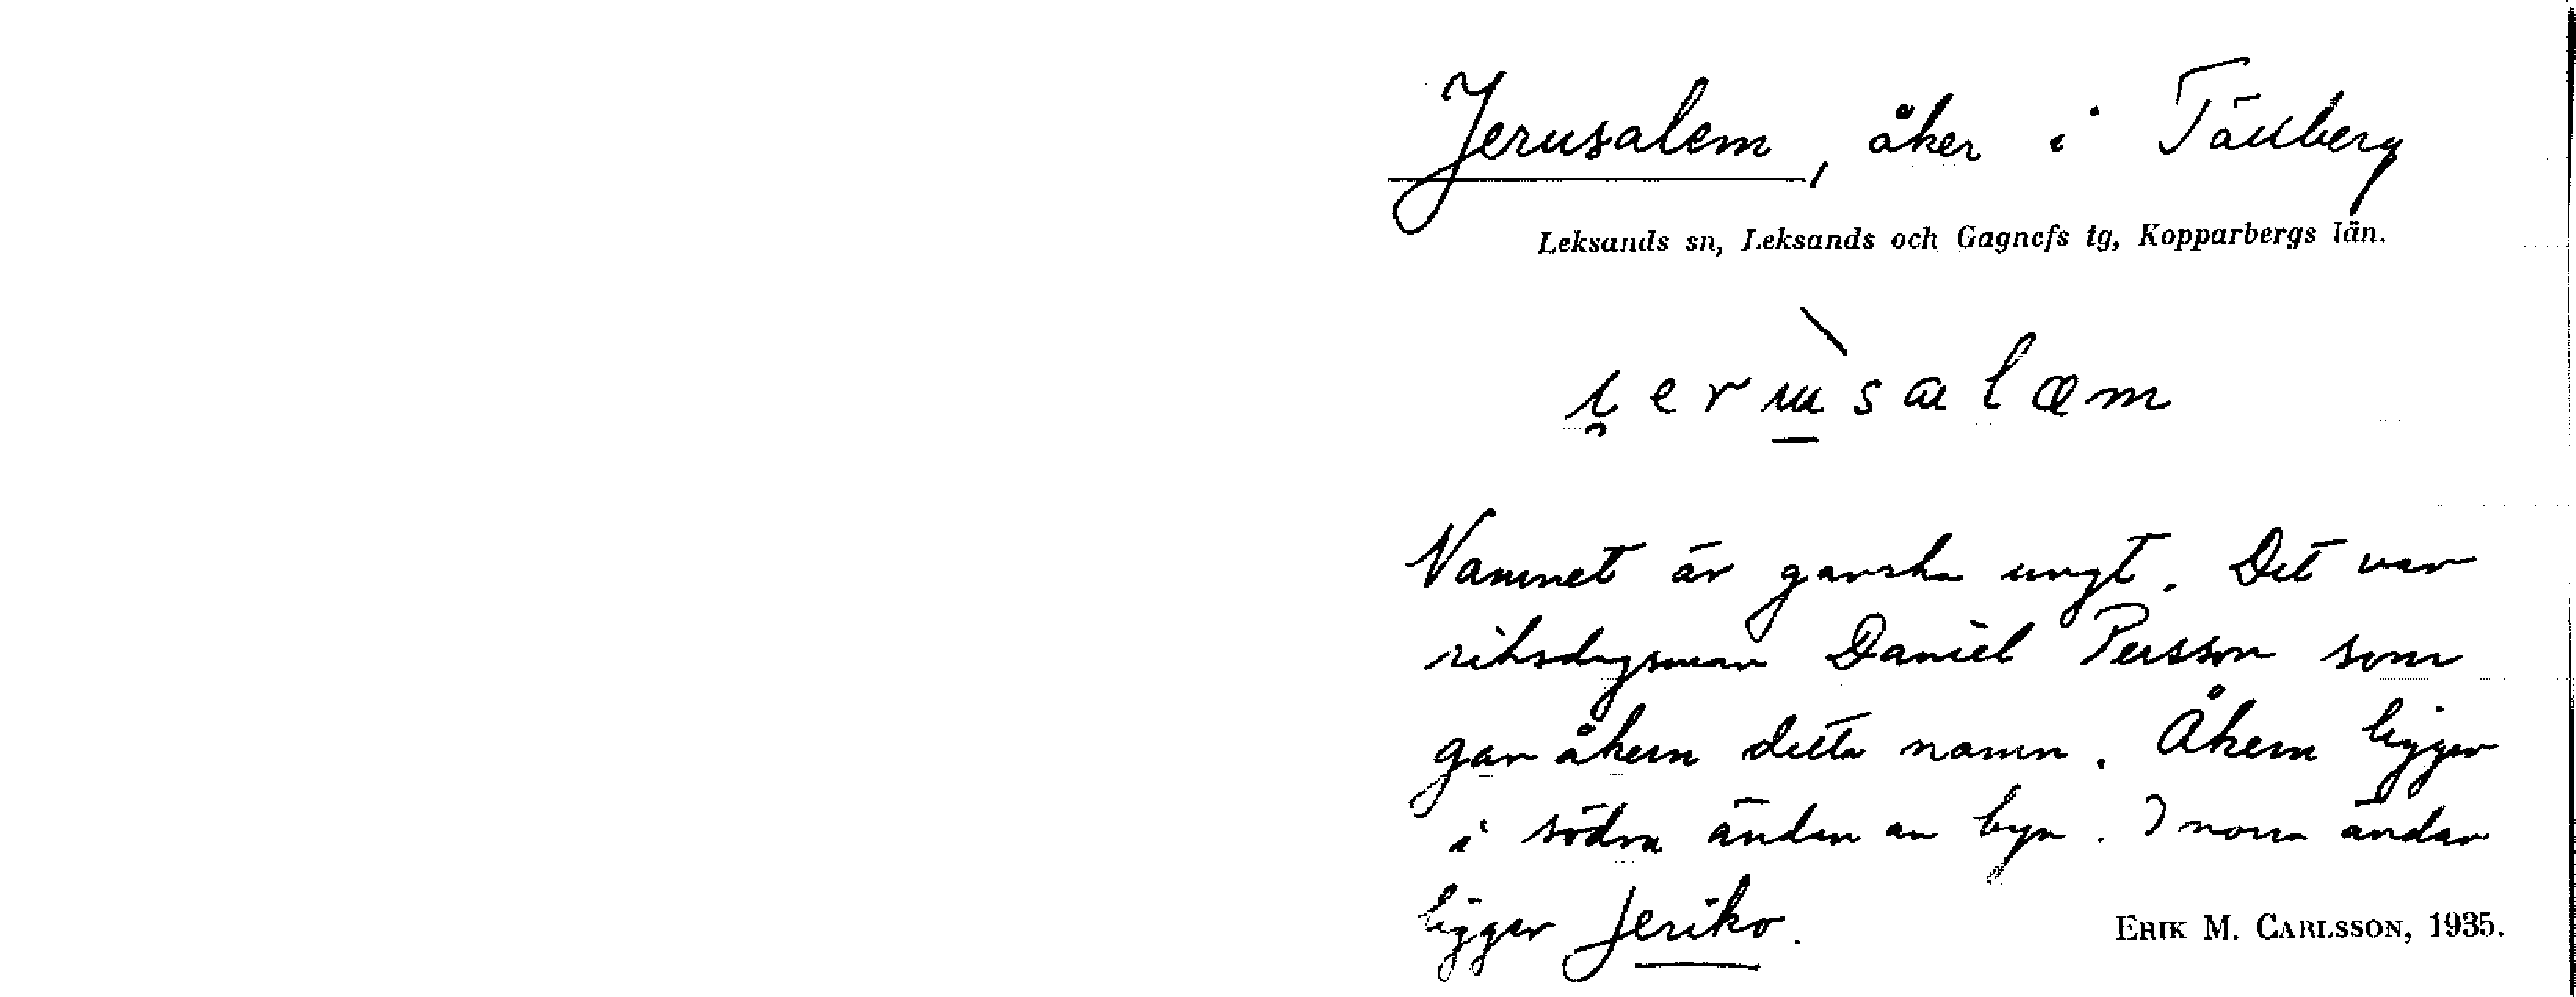 Jerusalem, åker i Tällberg
Leksands sn, Leksands och Gagnefs tg, Kopparbergs län.
i̯erɯ̀salæm
Namnet är ganska ungt. Det var
riksdagsman Daniel Persson som
gav åkern detta namn. Åkern ligger
i södra änden av byn. I norra ändan
ligger Jeriko.
ERIK M. CARLSSON, 1935.